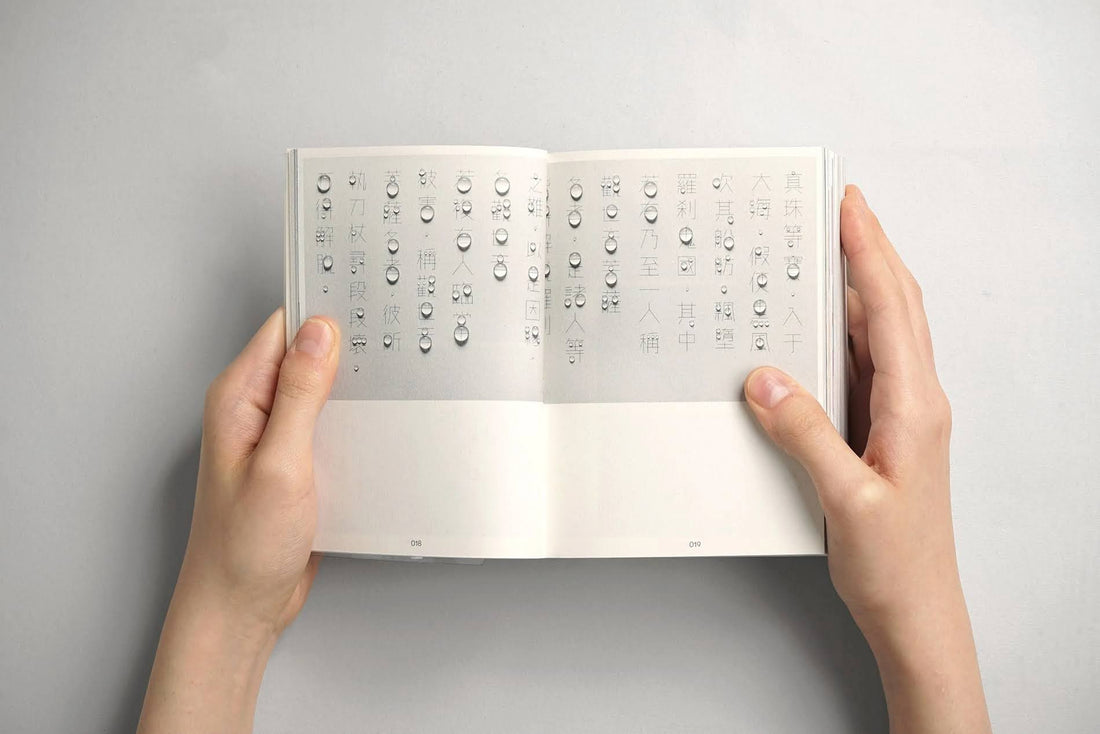 真珠等寶．入于
大海．假使黑風
吹其船舫．飄墮
羅刹鬼國．其中
若有乃至一人稱
觀世音菩薩
名者．是諸人等
之難．以是因緣
名觀世音
若復有人臨當
被害．稱觀世音
菩薩名者．彼所
執刀杖尋段段壞．
而得解脫．
018
019